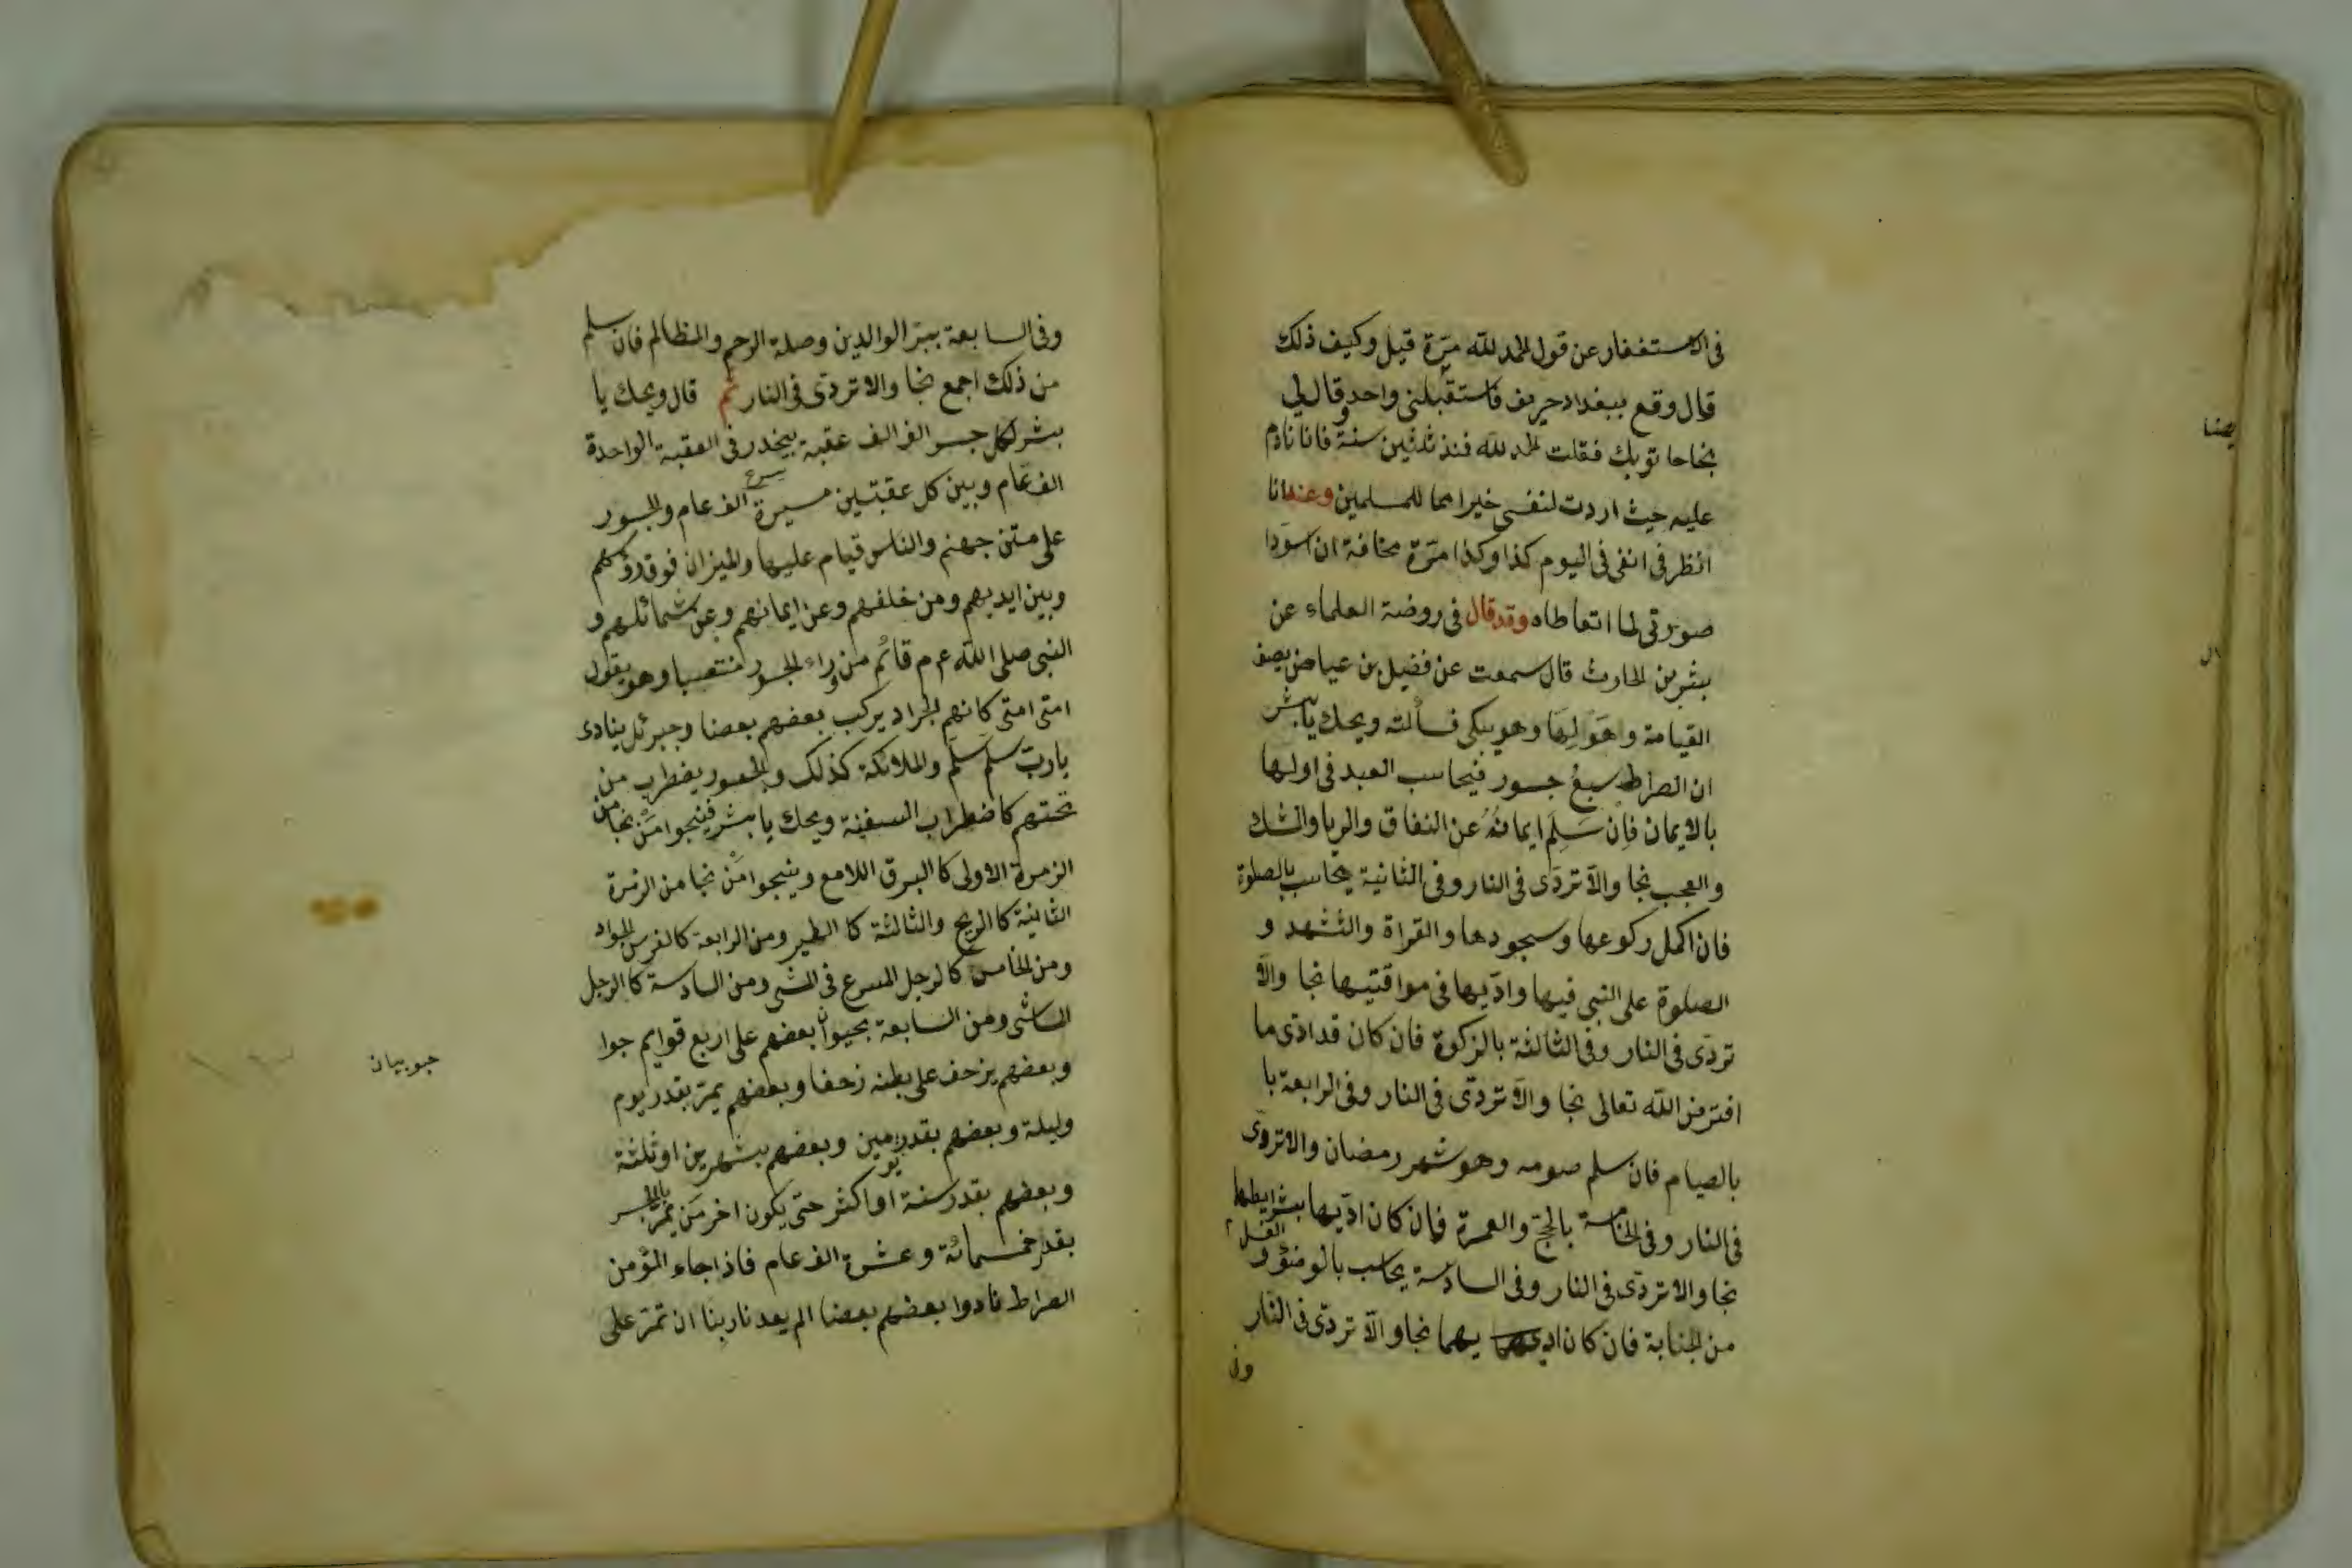 في الاستغفار عن قول الحمد لله مرّة قيل وكيف ذلك
قال وقع ببغداد حريق فاستقبلني واحد وقال لي
نجا حانوتك فقلت الحمد لله فمنذ ثلثين سنة فانا نادم
عليه حيث اردت لنفسي خيرا مما للمسلمين وعنه انا
انظر في انفي في اليوم كذا وكذا مرّة مخافة ان اسودّا
صورتي لما اتعاطاه وقد قال في روضة العلماء عن
بشر بن الحارث قال سمعت عن فضيل بن عياض يصف
القيامة واهوالها وهو يبكي فسألته ويحك يا بشر
ان الصراط سبع جسور فيحاسب العبد في اولها
بالايمان فان سلم ايمانه عن النفاق والريا والشك
والعجب نجا والّا تردّى في النار وفي الثانية يحاسب بالصلوة
فان اكمل ركوعها وسجودها والقراة والتشهد و
الصلوة على النبي فيها وادّيها في مواقتيها نجا والّا
تردّى في النار وفي الثالثة بالزكوة فان كان قد ادّى ما
افترض الله تعالى نجا والّا تردّى في النار وفي الرابعة با
بالصيام فان سلم صومه وهو شهر رمضان والا تردّى
في النار وفي الخامسة بالحجّ والعمرة فان كان ادّيها بشرايطها
نجا والا تردّى في النار وفي السادسة يحاسب بالوضوء و الغسل
من الجنابة فان كان اديهما نجا والّا تردّى في النار
وفي
وفي السابعة ببرّ الوالدين وصلة الرحم والمظالم فان سلم
من ذلك اجمع نجا والا تردّى في النار ثم قال ويحك يا
بشر لكل جسر الف الف عقبة ينحدر في العقبة الواحدة
الف عام وبين كل عقبتين مسيرة الف عام والجسور
على متن جهنم والناس قيام عليها والميزان فوق رؤسهم
وبين ايديهم ومن خلفهم وعن ايمانهم وعن شمائلهم و
النبي صلى الله ع م قائم من وراء الجسور منتصبا وهو يقول
امتى امتى كانهم الجراد يركب بعضهم بعضا وجبرئل ينادى
يا ربّ سلّم سلّم والملائكة كذلك والجسور يضطرب من
تحتهم كاضطراب السفينة ويحك يا بشر فينجوا مَنْ نجا من
الزمرة الاولى كا البرق اللامع وينجوا مَنْ نجا من الزمرة
الثانية كا الريح والثالثة كا الطير ومن الرابعة كالفرس الجواد
ومن الخامس كالرجل المسرع في المشى ومن السادسة كا الرجل
الماشى ومن السابعة بحيوان بعضهم على اربع قوايم جوا
وبعضهم يزحف على بطنه زحفا وبعضهم يمرّ بقدر يوم
وليلة وبعضهم بقدر يومين وبعضهم بشهرين او ثلثة
وبعضهم بقدر سنة او اكثر حتى يكون اخر من يمرّ بالجسر
بقدر خمسمائة وعشرة الف عام فاذا جاء المؤمن
الصراط نادوا بعضهم بعضا الم يعدنا ربنا ان تمرّ على